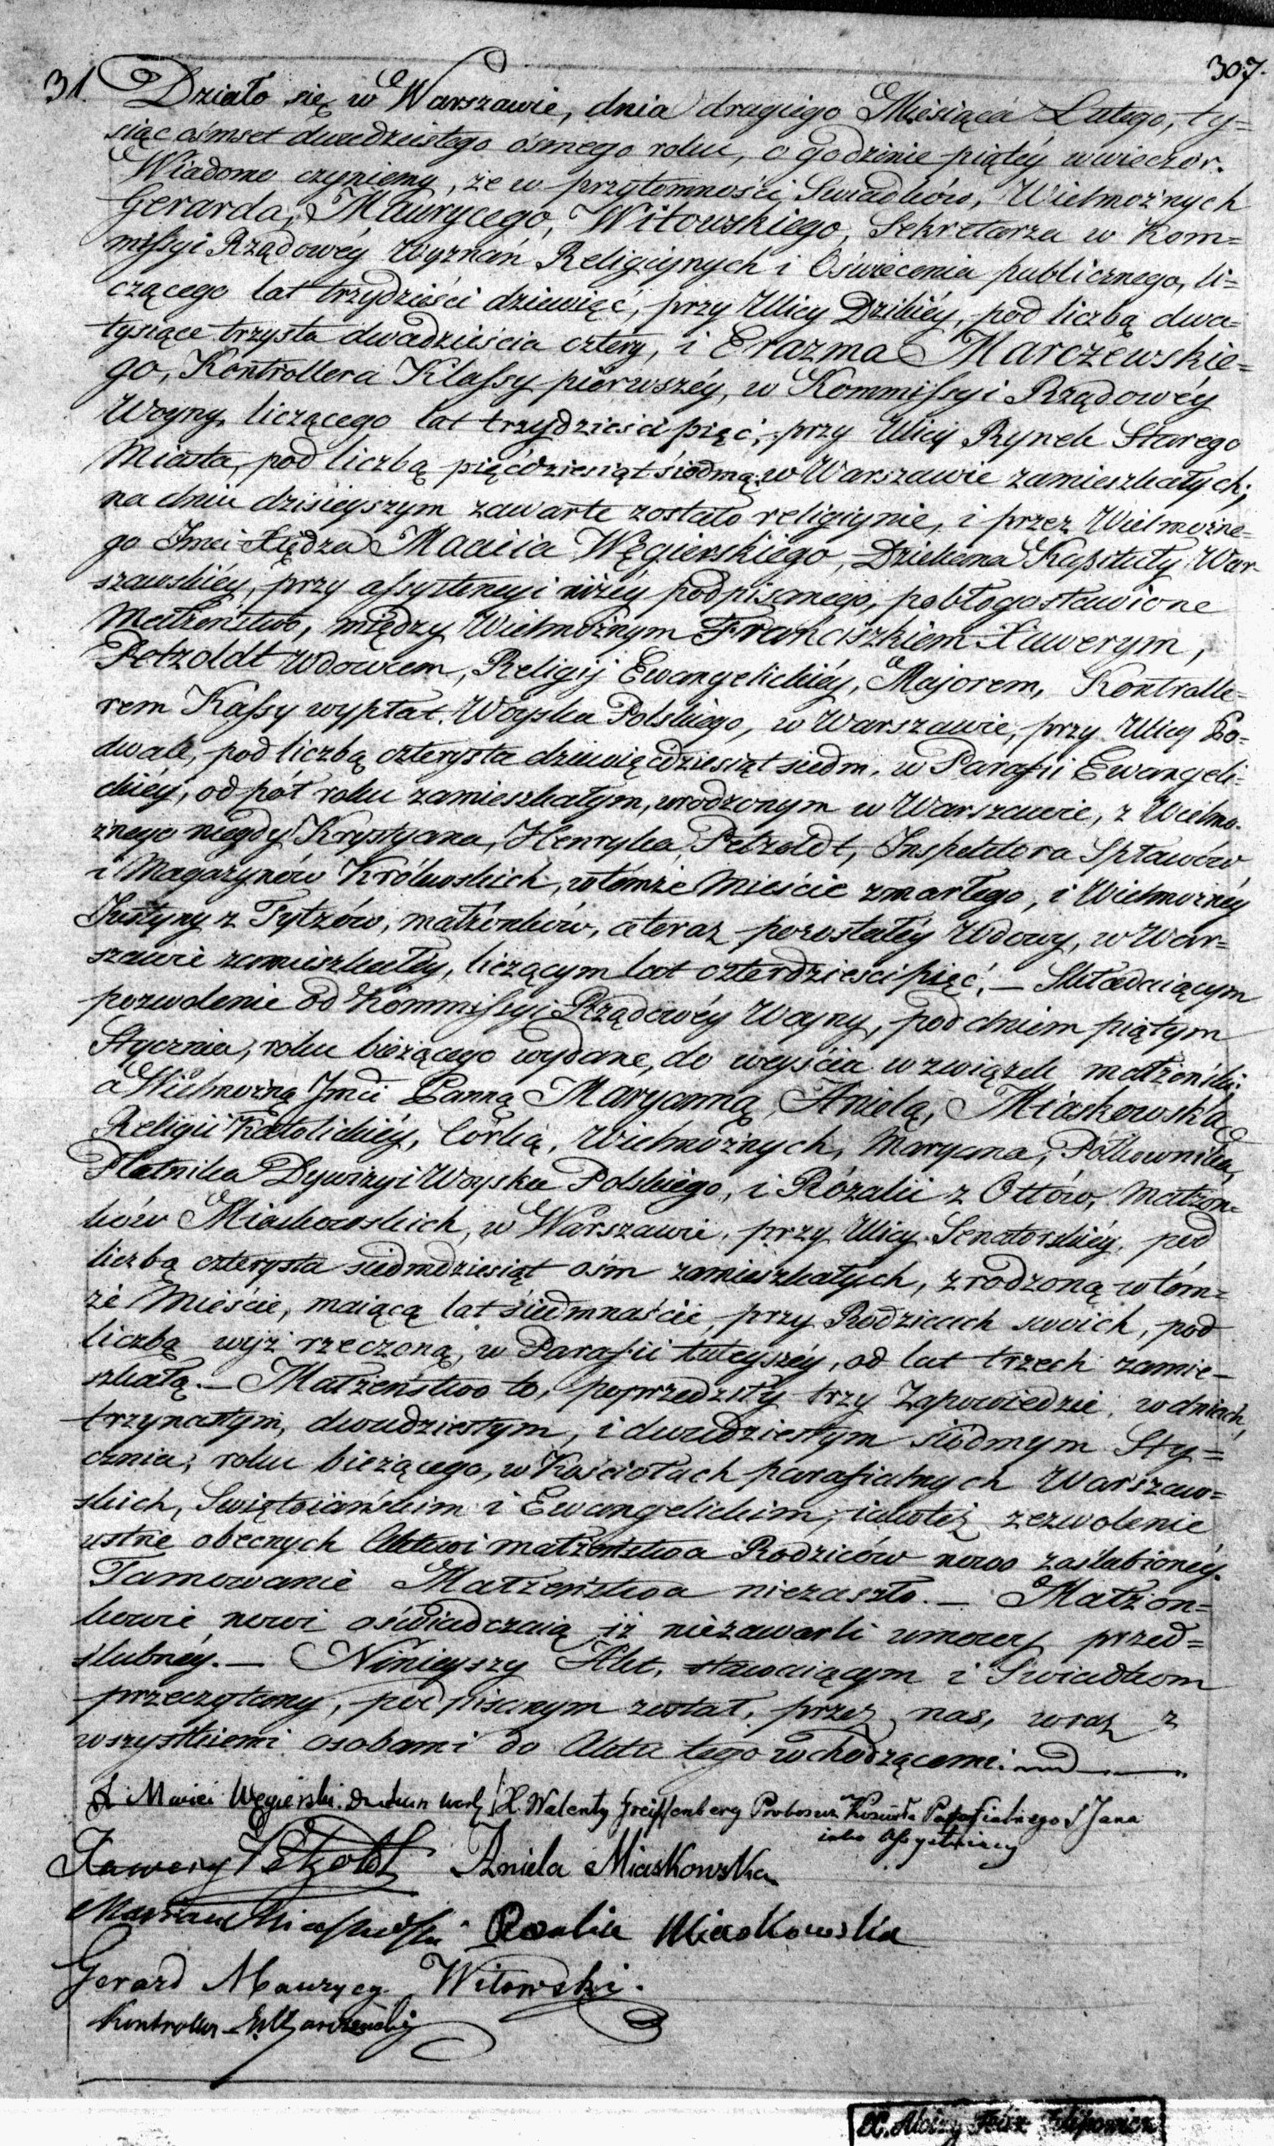 307.
31. Działo się w Warszawie, dnia drugiego Miesiąca Lutego, ty=
siąc ośmset dwudziestego ósmego roku, o godzinie piątéy w wieczór.
Wiadomo czyniemy, że w przytomności Swiadków, Wielmożnych
Gerarda, Maurycego, Witowskiego, Sekretarza w Kom=
missyi Rządowéy Wyznań Religiynych i Oświecenia publicznego, li=
czącego lat trzydzieści dziewięć, przy Ulicy Dzikiéy, pod liczbą dwa=
tysiące trzysta dwadzieścia cztery, i Erazma Marczewskie=
go, Kontrollera Klassy pierwszéy, w Kommissyi Rządowéy
Woyny, liczącego lat trzydzieści pięć, przy Ulicy Rynek Starego
Miasta, pod liczbą pięćdziesiąt siódmą w Warszawie zamieszkałych;
na dniu dzisieyszym zawarte zostało religiynie, i przez Wielmożne=
go Jmci Xiędza Macieia Węgierskiego, Dziekana Kapituły War=
szawskiéy, przy assystencyi niżéy podpisanego, pobłogosławione
Małżeństwo, między Wielmożnym Franciszkiem Xawerym,
Petzoldt Wdowcem, Religij Ewangelickiéy, Majorem, Kontrolle=
rem Kassy wypłat Woyska Polskiego, w Warszawie, przy Ulicy Po=
dwale, pod liczbą czterysta dziewięćdziesiąt siedm, w Parafii Ewangeli=
ckiéy, od pół roku zamieszkałym, urodzonym w Warszawie, z Wielmo=
żnego niegdy Krystyana, Henryka Petzoldt, Inspektora Spławów
i Magazynów Królewskich, w tómże Mieście zmarłego, i Wielmożnéy
Justyny z Tytzów, małżonków, a teraz pozostałéy Wdowy, w War=
szawie zamieszkałéy, liczącym lat czterdzieści pięć. — Składaiącym
pozwolenie od Kommissyi Rządowéy Woyny, pod dniem piątym
Stycznia, roku bieżącego wydane, do weyścia w związek małżeński;
a Wielmożną Jmci Panną Maryanną Anielą, Miaskowską
Religii Katolickiéy, Córką, Wielmożnych, Maryana, Półkownika,
Płatnika Dywizyi Woyska Polskiego, i Rózalii z Ottów, Małżon=
ków Miaskowskich, w Warszawie, przy Ulicy Senatorskiéy, pod
liczbą czterysta siedmdziesiąt ośm zamieszkałych, zrodzoną w tóm=
że Mieście, maiącą lat siedmnaście, przy Rodzicach swoich, pod
liczbą wyż rzeczoną, w Parafii tuteyszéy, od lat trzech zamie=
szkałą. — Małżeństwo to, poprzedziły trzy Zapowiedzie, w dniach,
trzynastym, dwudziestym, i dwudziestym siódmym Sty=
cznia, roku bieżącego, w Kościołach parafialnych Warszaw=
skich, Swiętoiańskim i Ewangelickim, iakotéż zezwolenie
ustne obecnych Aktowi małżeństwa Rodziców nowo zaślubionéy.
Tamowanie Małżeństwa niezaszło. — Małżon=
kowie nowi oświadczaią iż niezawarli umowy przed=
ślubnéy. — Ninieyszy Akt, stawaiącym i Swiadkom
przeczytany, podpisanym został, przez nas, wraz z
wszystkiemi osobami do Aktu tego wchodzącemi.
X Maciei Węgierski Dziekan X. Walenty Greiffenberg Proboszcz Kościoła Parafialnego S Jana
iako Assystuiący
Xawery Petzoldt Aniela Miaskowska
Maryan Miaskowski Rozalia Miaskowska
Gerard Maurycy Witowski.
Kontroller E. Marczewski